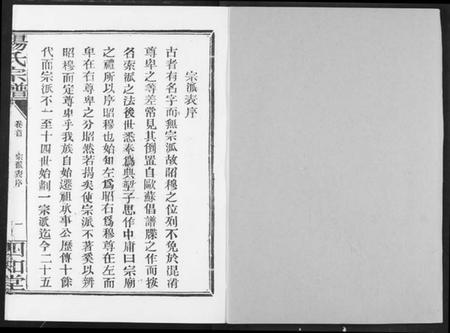 宗派表序
古者有名字而無宗派故昭穆之位列不免於混淆
尊卑之等差常見其倒置自歐蘇倡譜牒之作而按
名索派之法後世悉奉爲典型子思作中庸曰宗廟
之禮所以序昭穆也始知左爲昭右爲穆尊在左而
卑在右尊卑之分昭然若揭矣使宗派不著奚以辨
昭穆而定尊卑乎我族自始遷祖承事公歷傳十餘
代而宗派不一至十四世始劃一宗派迄今二十五
楊氏宗譜
卷首
宗派表序
一
四知堂